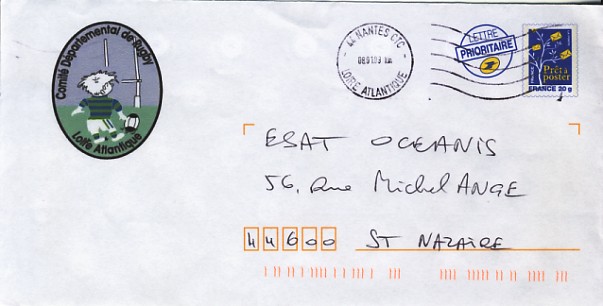 Comité Départemental de Rugby
Loire Atlantique
44 NANTES CTC
LOIRE ATLANTIQUE
LETTRE
PRIORITAIRE
Prêt à
poster
FRANCE 20 g
ESAT OCEANIS
56, rue Michel ANGE
44600 ST NAZAIRE